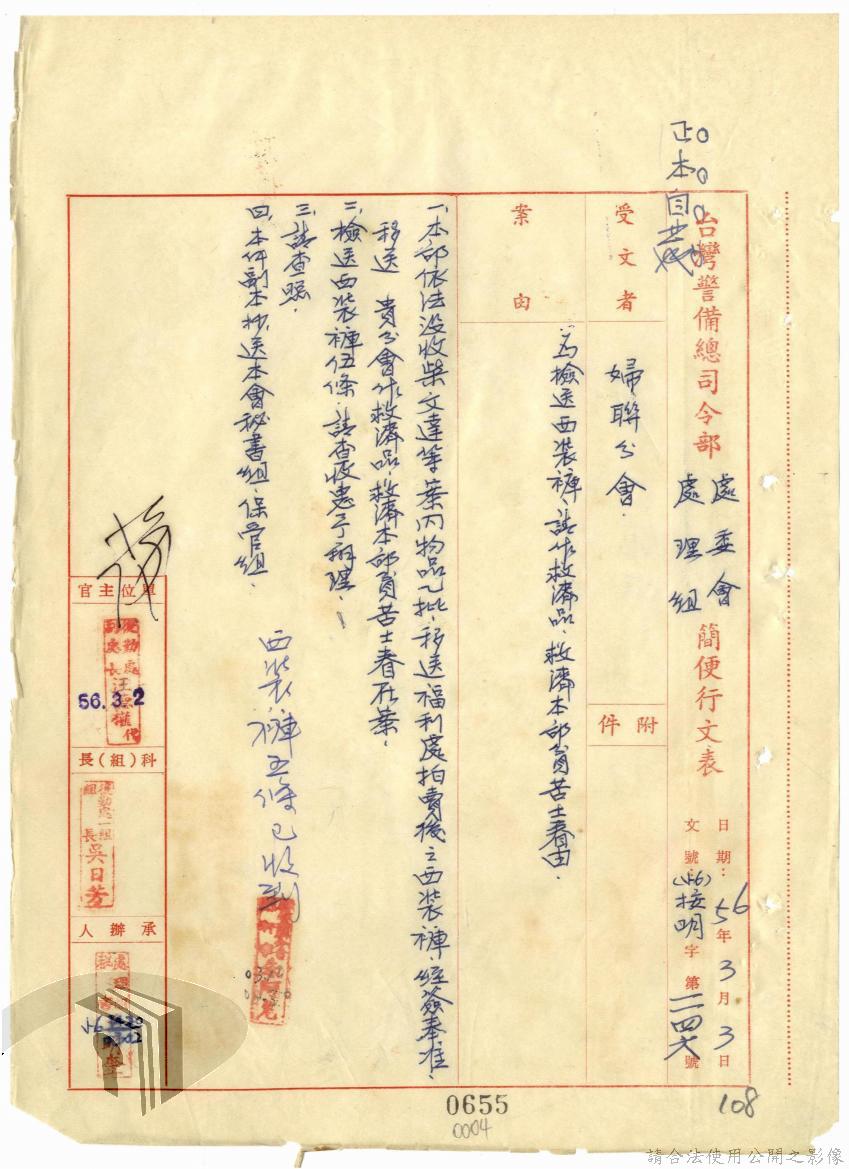 正本自茂
台灣警備總司令部
處委會
處理組
簡便行文表
日期：56年3月3日
文號：(56)接明字第二四六號
受文者
婦聯分會．
附件
案由
為檢送西裝褲，請作救濟品，救濟本部貧苦士眷由．
一、本部依法沒收柴文達等案內物品乙批，移送福利處拍賣後之西裝褲，經簽奉准，
移送　貴分會作救濟品，救濟本部貧苦士眷在案．
二、檢送西裝褲伍條，請查收惠予辦理．
三、請查照．
四、本件副本抄送本會秘書組、保管組．
西裝褲五條已收到
單位主官
後勤處
副處長汪
代
56.3.2
科(組)長
後勤處一組
組長吳日芳
承辦人
處理組
0655
0004
108
請合法使用公開之影像